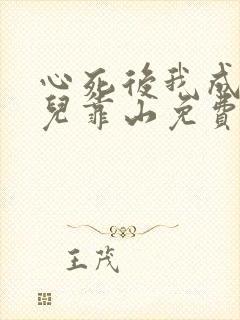 心死後我成
兒靠山免費
王茂